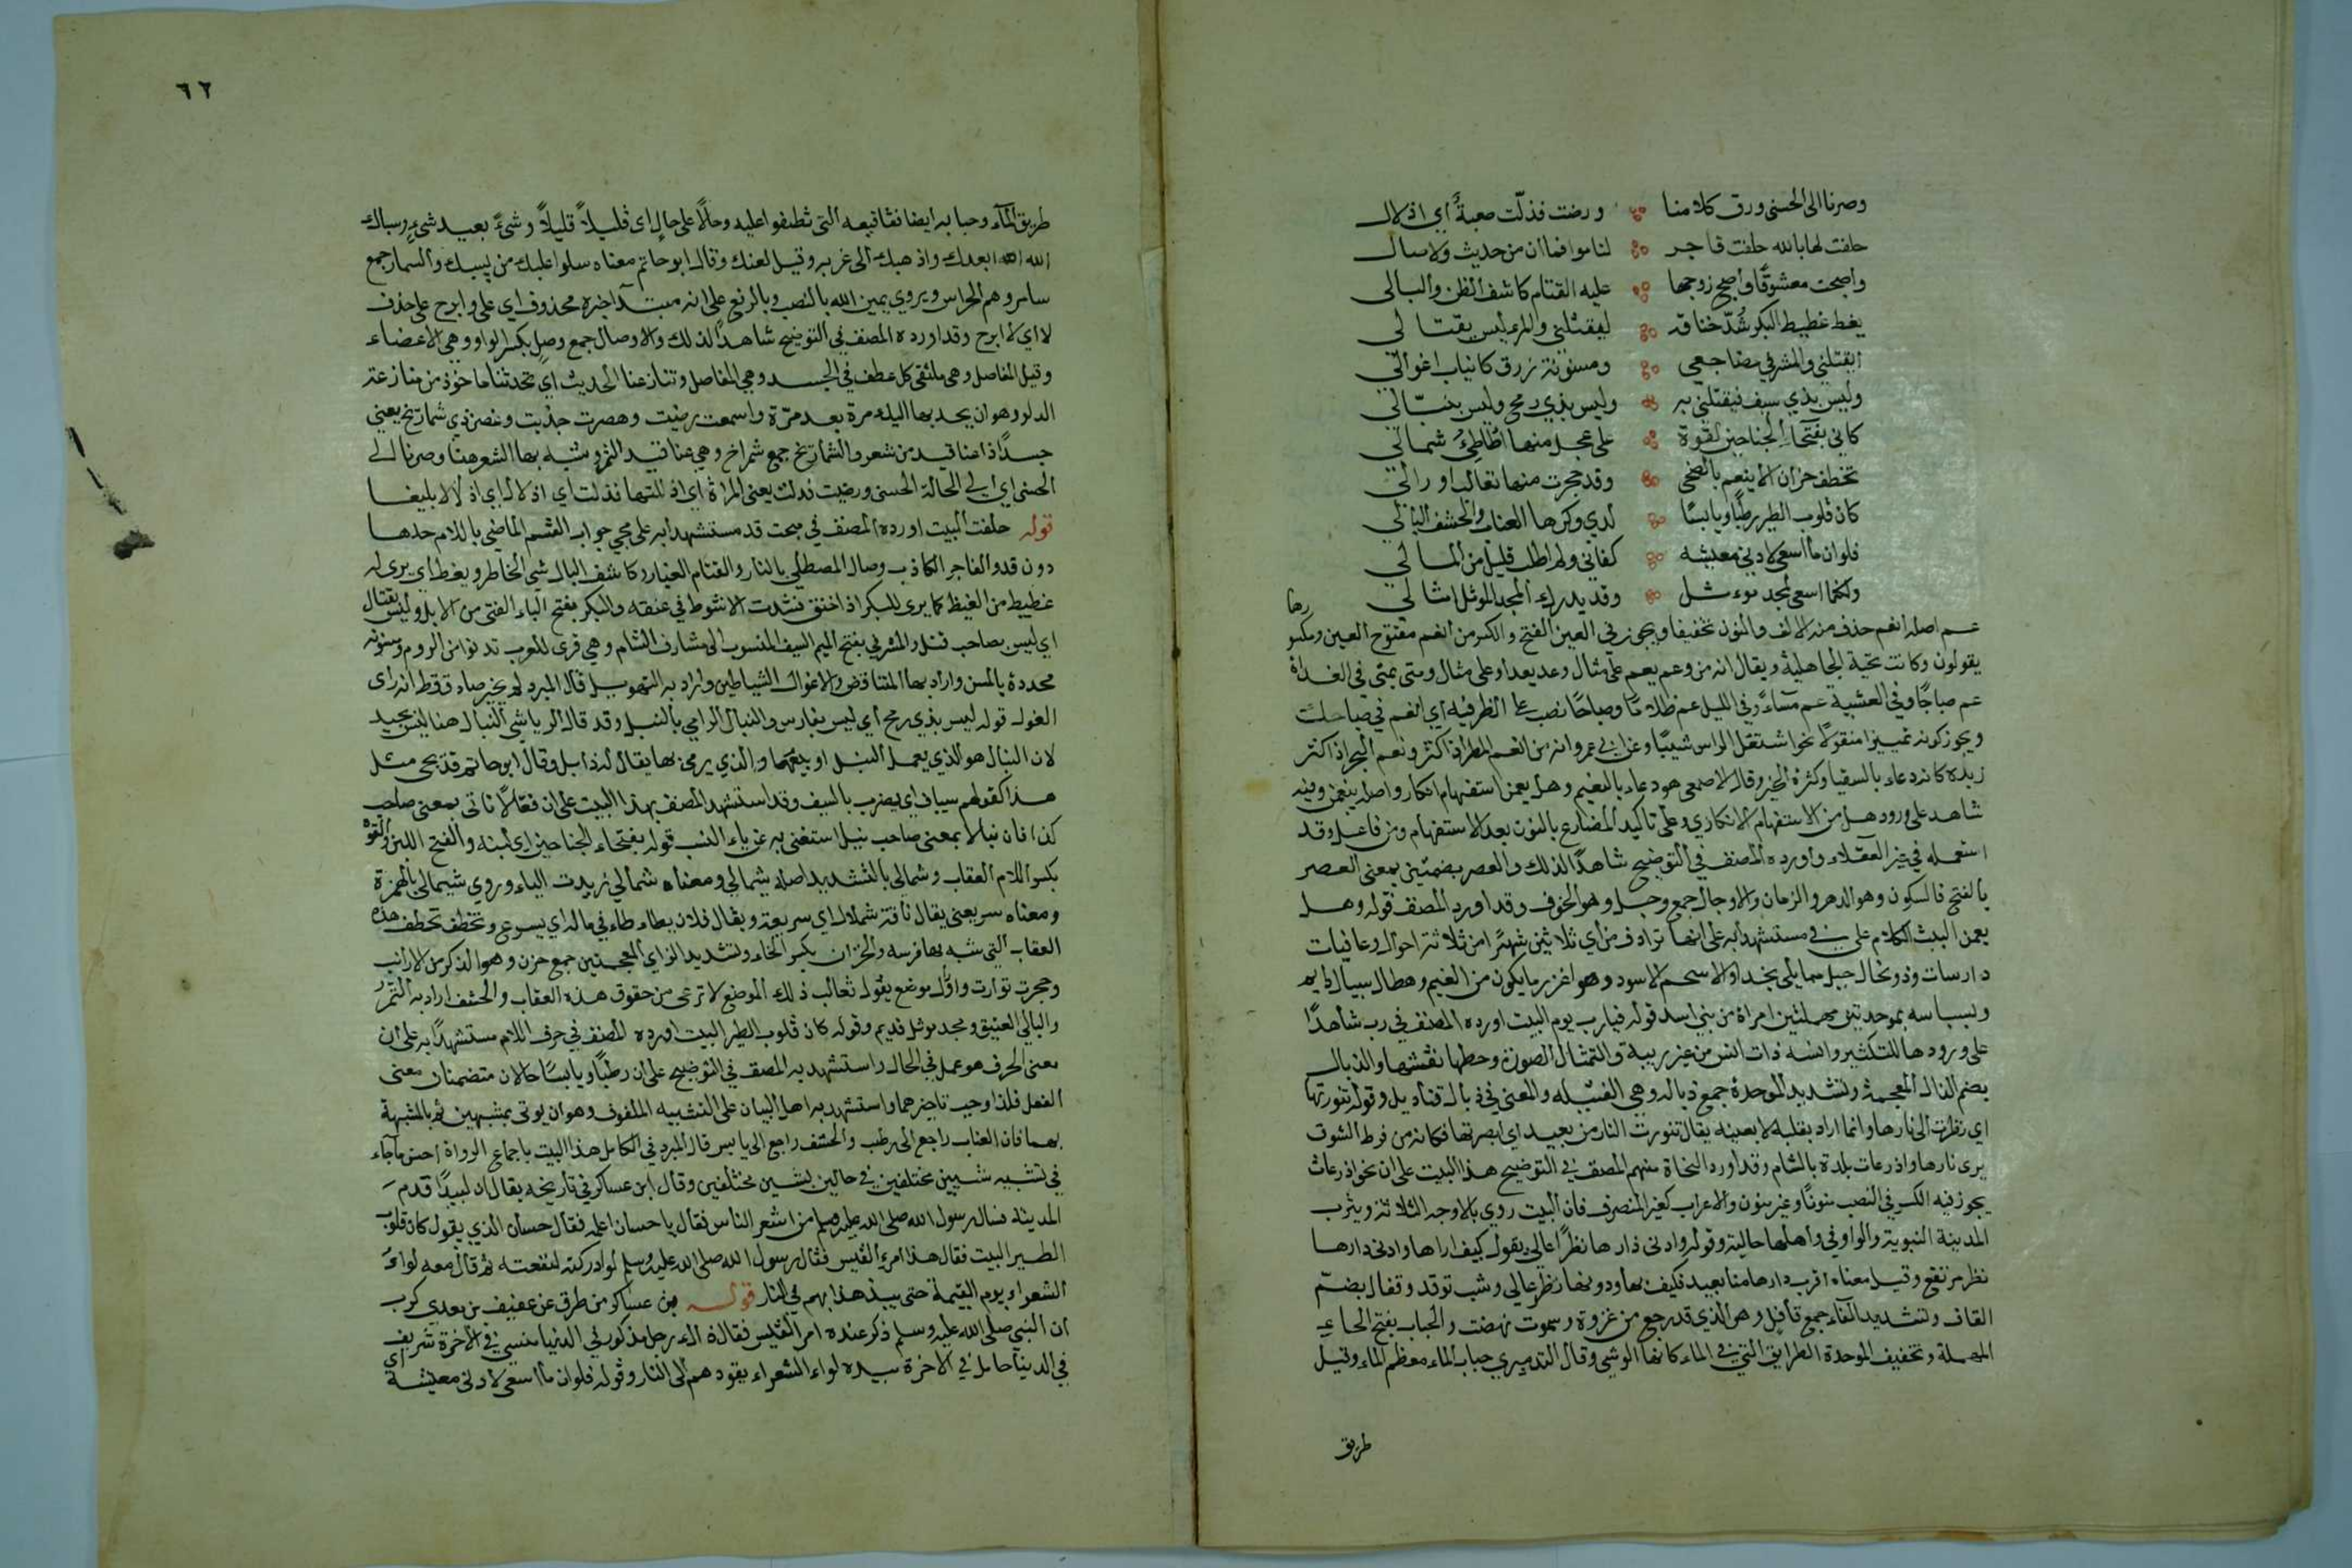 وصرنا الى الحسنى ورق كلامنا ورضت فذلّت صعبةً اي اذلال
حلفت لها بالله حلفت فاجر لناموا فما ان من حديث ولا صال
واصبحت معشوقًا واصبح زوجها عليه القتام كاشف الظن والبالى
يغط غطيط البكر شُدّ خناقه ليقتلني والمرء ليس بقتالي
ايقتلني والمشرفي مضاجعي ومسنونة زرق كانياب اغوالي
وليس بذي سيف فيقتلني به وليس بذي رمح وليس بنبّالي
كاني بفتخاء الجناحين لقوة على عجل منها اطاطئ شمالي
تخطف خزان الانيعم بالضحى وقد حجرت منها ثعالب اورالي
كان قلوب الطير رطبًا ويابسًا لدي وكرها العناب والحشف البالي
فلوان ما اسعى لادنى معيشة كفاني ولم اطلب قليل من المالي
ولكنما اسعى لمجد موءثل وقد يدرك المجد الموثل امثالي
عم اصله انعم حذف منه الالف والنون تخفيفا ويجوز في العين الفتح والكسر من انعم مفتوح العين ومكسورها
يقولون وكانت تحية الجاهلية ويقال انه من وعم يعم على مثال وعد يعد او على مثال ومتى يمتي في الغداة
عم صباحًا وفي العشية عم مساءً وفي الليل عم ظلامًا وصباحًا نصب على الظرفيه اي انعم في صباحك
ويجوز كونه تمييزا منقولًا نحو اشتعل الراس شيبًا وعن ابي عمرو انه من انعم المطر اذا كثر ونعم البحر اذا كثر
زبده كانه دعاء بالسقيا وكثرة الخير وقال الاصمعي هو دعاء بالنعيم وهل يعمن استفهام انكار واصله ينعمن وفيه
شاهد على ورود هل من الاستفهام الانكاري وعلى تاكيد المضارع بالنون بعد الاستفهام ومن فاعل وقد
استعمله في غير العقلاء واورده المصنف في التوضيح شاهدًا لذلك والعصر بضمتين بمعنى العصر
بالفتح فالسكون وهو الدهر والزمان والاوجال جمع وجل وهو الخوف وقد اورد المصنف قوله وهل
يعمن البيت الكلام على في مستشهدًا به على انها ترادف من اي ثلاثين شهرًا من ثلاثة احوال وعافيات
دارسات وذو نخال جبل مما يلي نجد او الاسحم الاسود وهو اغزر ما يكون من الغيم وهطال سيال دايم
وبسباسه بموحدتين مهملتين امراة من بني اسد قوله فيارب يوم البيت اورده المصنف في رب شاهدًا
على ورودها للتكثير وانسه ذات انس من غير ريبة والتمثال الصورة وحطها نقشها والذبال
بضم الذال المعجمة وتشديد الموحدة جمع ذباله وهي الفتيله والمعنى في ذبال قناديل وقوله تنورتها
اي نظرت الى نارها وانما اراد بقلبه لا بعينه يقال تنورت النار من بعيد اي ابصرتها فكانه من فرط الشوق
يرى نارها واذرعات بلدة بالشام وقد اورد النحاة منهم المصنف في التوضيح هذا البيت على ان نحو اذرعات
يجوز فيه الكسر في النصب منونًا وغير منون والاعراب كغير المنصرف فان البيت روي بالاوجه الثلاثة ويثرب
المدينة النبوية والواو في واهلها حالية وقوله وادنى دارها نظرًا عالي يقول كيف اراها وادنى دارها
نظر مرتفع وقيل معناه اقرب دارها منا بعيد فكيف بها ودونها نظر عالي وشب توقد وقفال بضم
القاف وتشديد الفاء جمع قافل وهو الذي قد رجع من غزوة وسموت نهضت والحباب بفتح الحاء
المهملة وتخفيف الموحدة الطرايق التي في الماء كانها الوشي وقال التدميري حباب الماء معظم الماء وقيل
طريق
٦٢
طريق الماء وحبابه ايضا نفاقيعه التي تطفوا عليه وحالًا على حال اي قليلاً قليلاً وشيءً بعيد شيءٍ وسباك
الله ابعدك واذهبك الى غربه وقيل لعنك وقال ابو حاتم معناه سلوا عليك من يسبك والسمار جمع
سامر وهم الحراس ويروى يمين الله بالنصب وبالرفع على انه مبتداخبره محذوف اي على وابرح على حذف
لا اي لا ابرح وقد اورده المصنف في التوضيح شاهدًا لذلك والاوصال جمع وصل بكسر الواو وهي الاعضاء
وقيل المفاصل وهي ملتقى كل عطف في الجسد وهي المفاصل وتنازعنا الحديث اي تحدثنا ماخوذ من منازعة
الدلو وهو ان يجذبها اليك مرة بعد مرّة واسمعت رضيت وهصرت جذبت وغصن ذي شماريخ يعني
جسدًا ذا عناقيد من شعر والشماريخ جمع شمراخ وهي عناقيد الثمر وشبه بها الشعر هنا وصرنا الى
الحسنى اي الى الحالة الحسنى ورضيت فذلت يعني المراة اي اذللتها فذلت اي اذلال اي اذلالا بليغا
قوله حلفت البيت اورده المصنف في مبحث قد مستشهدا به على مجي جواب القسم الماضي باللام حدها
دون قد والفاجر الكاذب وصال المصطلي بالنار والقتام الغبار وكاسف البال سئ الخاطر ويغط اي يرى له
غطيط من الغيظ كما يرى للبكر اذا خنق فشدت الانشوط في عنقه والبكر بفتح الباء الفتى من الابل وليس بقتال
اي ليس بصاحب قتل والمشرفي بفتح الميم السيف المنسوب الى مشارف الشام وهي قرى للعرب تدنوا من الروم ومسنونه
محددة بالمسن واراد بها المتنافض والاغوال الشياطين واراد به التهويل قال المبرد لم يخبر صادق قط انه راى
الغول قوله ليس بذي رمح اي ليس بفارس والنبال الرامي بالنبل وقد قال الرياشي النبال هنا ليس بجيد
لان النبال هو الذي يعمل النبل او يبيعها والذي يرمي بها يقال له نابل وقال ابو حاتم قد يجى مثل
هذا كقولهم سياف اي يضرب بالسيف وقد استشهد المصنف بهذا البيت على ان فعّالًا تاتي بمعنى صاحب
كذا فان نبالا بمعنى صاحب نبل استغنى به عن ياء النسب قوله بفتخاء الجناحين اي لينه والفتح اللين والقوة
بكسر اللام العقاب وشمالي بالتشديد اصله شمالي ومعناه شمالي زيدت الياء وروي شيمالي بالهمزة
ومعناه سريعني يقال ناقة شملال اي سريعة ويقال فلان يطاء طاء في ماله اي يسرع وتخطف تخطف هذه
العقاب التي شبه بها فرسه والخزان بكسر الخاء وتشديد الزاي المعجمتين جمع خزز وهو الذكر من الارانب
وحجرت توارت واورال موضع يقول ثعالب ذلك الموضع لا ترعى من حقوق هذه العقاب والحشف اراد به التمر
والبالي العتيق ومجد موثل قديم وقوله كان قلوب الطير البيت اورده المصنف في حرف اللام مستشهدًا به على ان
معنى الحرف هو عمل في الحال واستشهد به المصنف في التوضيح على ان رطبًا ويابسًا حالان متضمنان معنى
الفعل فلذا وجب تاخيرهما واستشهد به اهل البيان على التشبيه الملفوف وهو ان يوتى بمشبهين ثم بالمشبهة
بهما فان العناب راجع الى رطب والحشف راجع الى يابس قال المبرد في الكامل هذا البيت باجماع الرواة احسن ما جآء
في تشبيه شيين مختلفين في حالين بشيين مختلفين وقال ابن عساكر في تأريخه يقال ان لبيدًا قدم
المدينة فسال رسول الله صلى الله عليه وسلم من اشعر الناس فقال يا حسان اعلمه فقال حسان الذي يقول كان قلوب
الطير البيت فقال هذا امرئ القيس فقال رسول الله صلى الله عليه وسلم لو ادركته لنفعته ثم قال معه لواءُ
الشعراء يوم القيمة حتى يبذهذا بهم في النار قوله بن عساكر من طرق عن عفيف بن معدي كرب
ان النبي صلى الله عليه وسلم ذكر عنده امر القيس فقال ذاك رجل مذكور في الدنيا منسي في الاخرة شريف
في الدنيا حامل في الاخرة بيده لواء الشعراء يقودهم الى النار وقوله فلوان ما اسعى لادنى معيشة اي